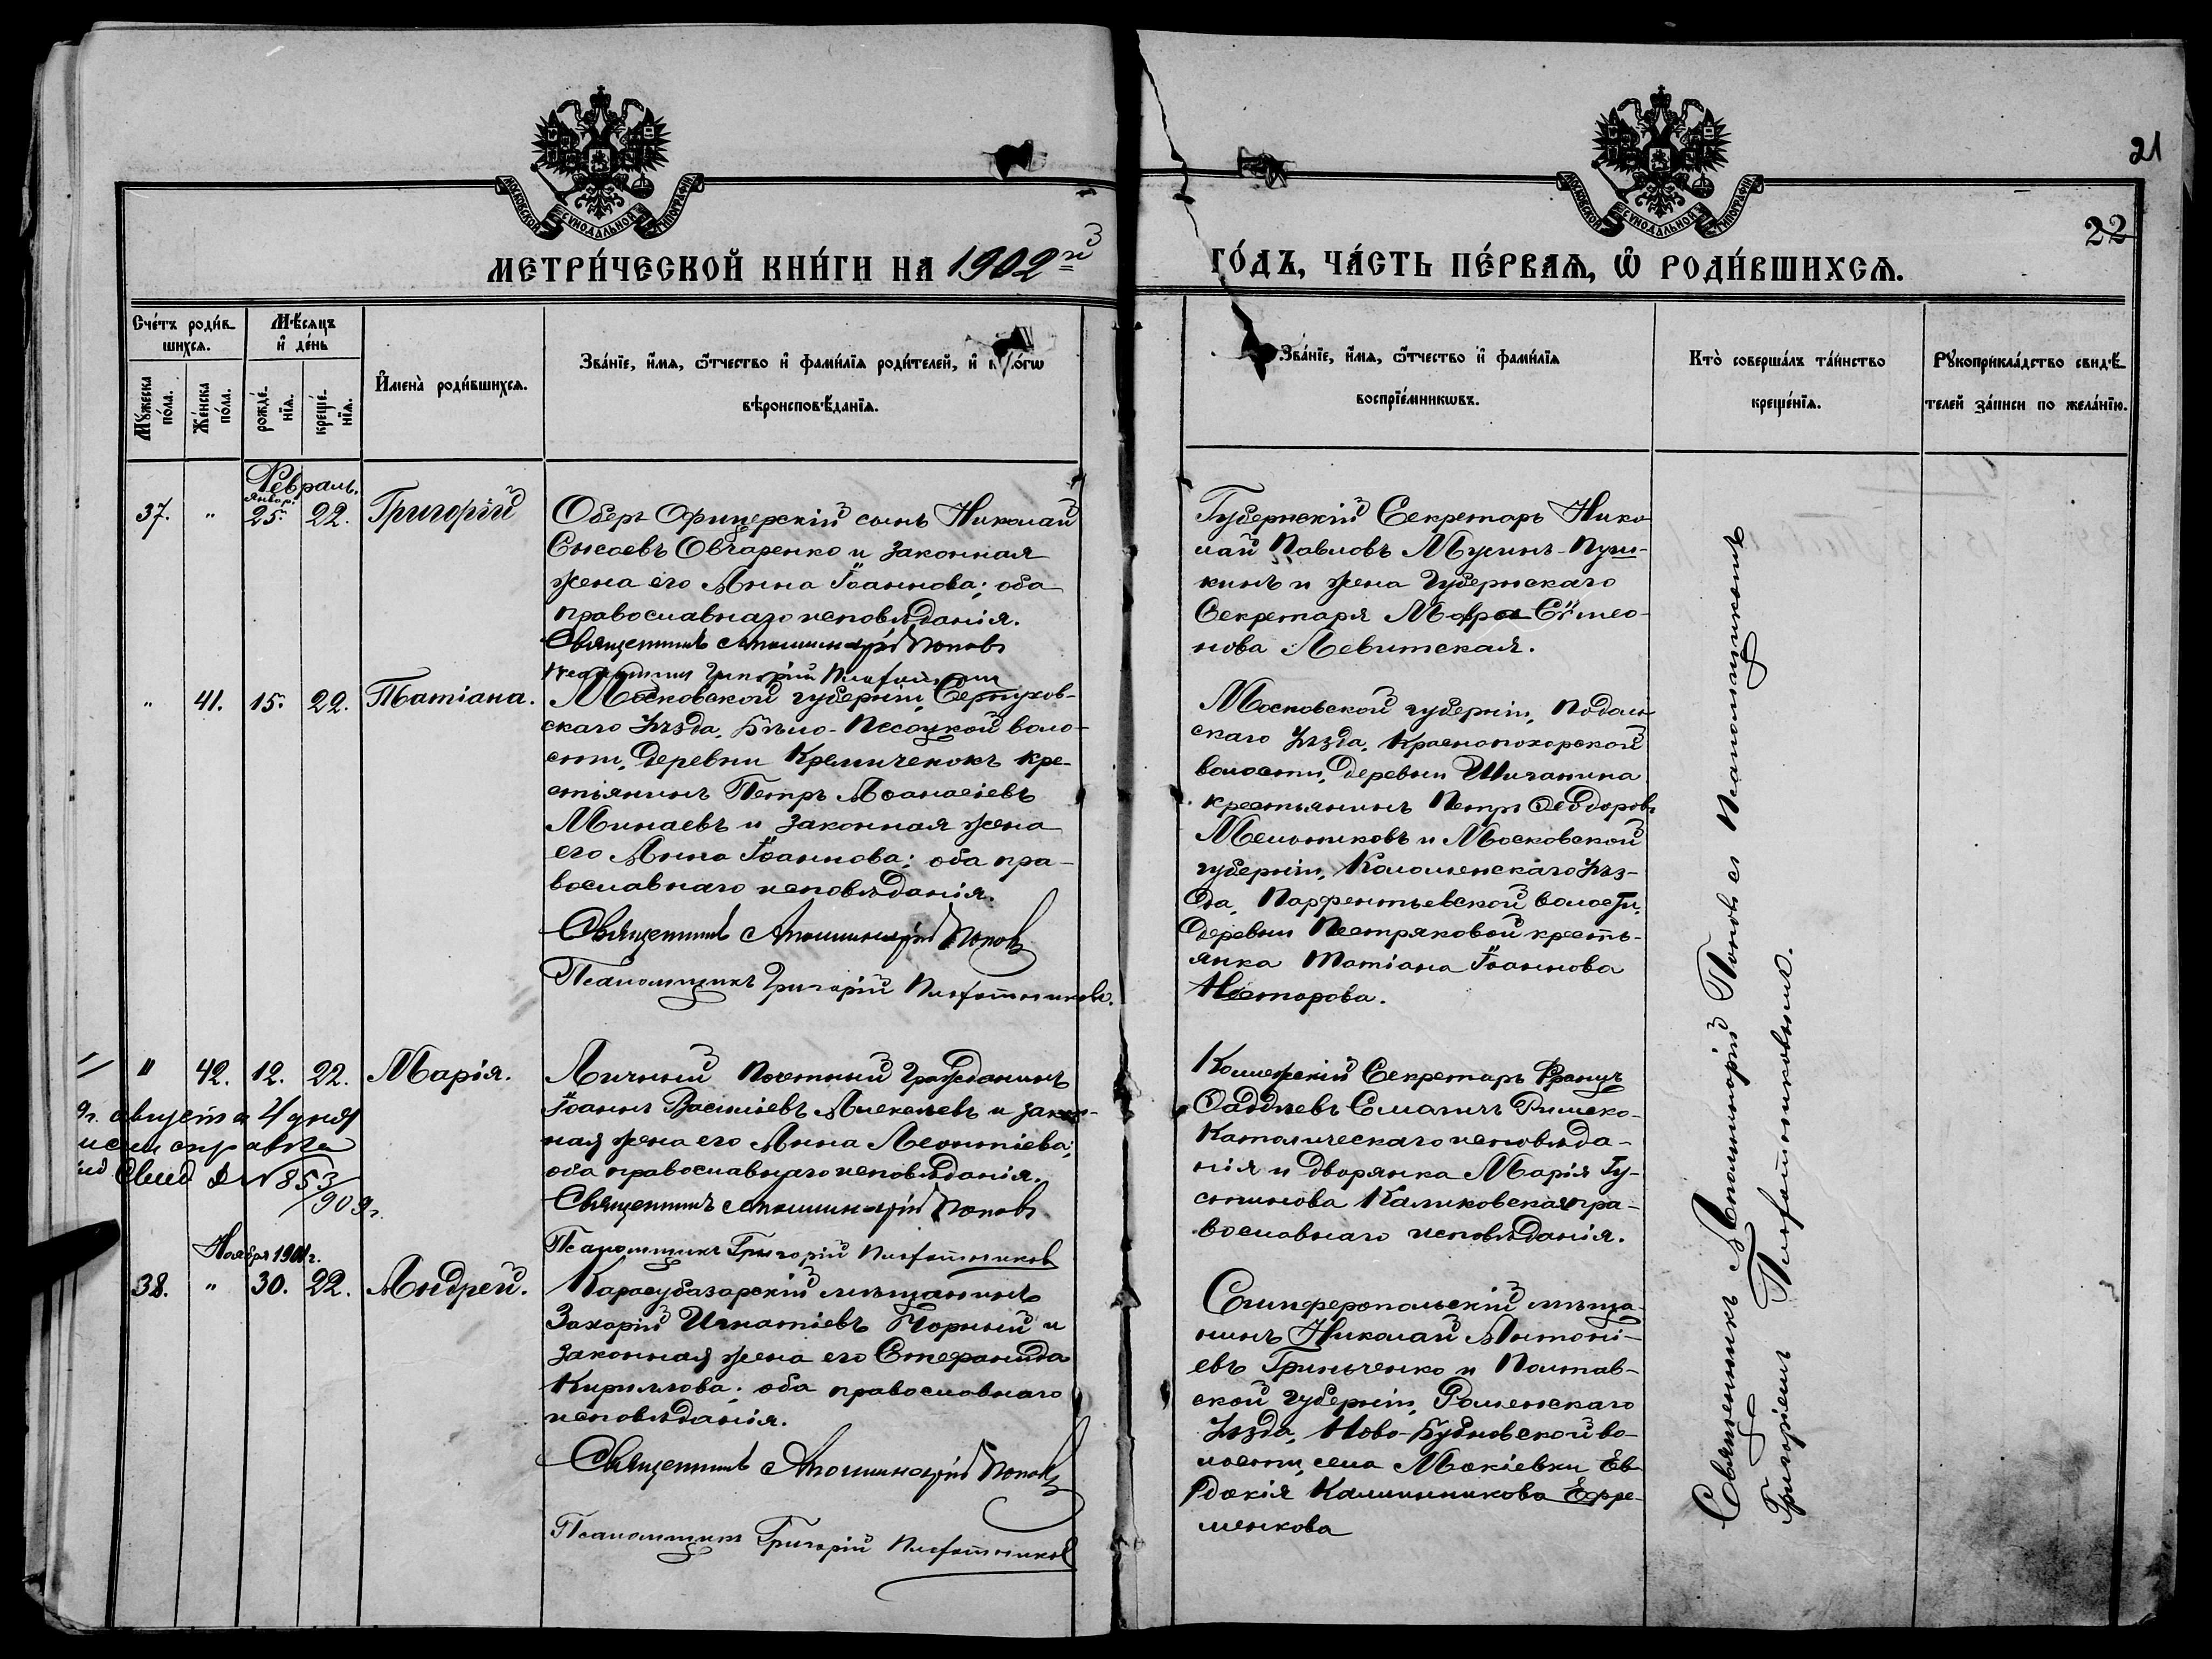 21
22
МОСКОВСКОЙ СѴНОДАЛЬНОЙ ТИПОГРАФІИ
МОСКОВСКОЙ СѴНОДАЛЬНОЙ ТИПОГРАФІИ
МЕТРИ́ЧЕСКОЙ КНИ́ГИ НА 1902й
ГО́ДЪ, ЧА́СТЬ ПЕ́РВАѦ, Ѽ РОДИ́ВШИХСѦ.
Сче́тъ роди́в-
шихсѧ.
Мѣ́сѧцъ
и҆ де́нь
Мꙋ́жеска
по́ла.
Же́нска
по́ла.
рожде́-
нїѧ.
креще́-
нїѧ.
И҆мена̀ роди́вшихсѧ.
Зва́нїе, и҆́мѧ, ѻ҆́тчество и҆ фами́лїѧ роди́телей, и҆
вѣроисповѣ́данїѧ.
Зва́нїе, и҆́мѧ, ѻ҆́тчество и҆ фами́лїѧ
воспрїе́мникѡвъ.
Кто̀ соверша́лъ та́инство
креще́нїѧ.
Рꙋкоприкла́дство свидѣ́-
телей за́писи по жела́нїю.
Февраль.
Январ.
37. " 25. 22. Григорій
Оберъ Офицерскій сынъ Николай
Сысоевъ Овчаренко и законная
жена его Анна Іоаннова; оба
православнаго исповѣданія.
Священникъ Аполлинарій Поповъ
Псаломщикъ Григорій
Губернскій Секретарь Нико-
лай Павловъ Мусинъ-Пуш-
кинъ и жена Губернскаго
Секретаря Мавра Сѵмео-
нова Левитская.
" 41. 15. 22. Татіана.
Московской губерніи, Серпухов-
скаго уѣзда, Бѣло-Песоцкой воло-
сти, деревни Кремиченокъ кре-
стьянинъ Петръ Аѳанасіевъ
Минаевъ и законная жена
его Анна Іоаннова; оба пра-
вославнаго исповѣданія.
Священникъ Аполлинарій Поповъ
Псаломщикъ Григорій
Московской губерніи, Подоль-
скаго уѣзда, Краснопахорской
волости, деревни Шиганина
крестьянинъ Петръ Ѳеодоровъ
Мельниковъ и Московской
губерніи, Коломенскаго уѣз-
да, Парфентьевской волости,
деревни Пестряковой кресть-
янка Татіана Іоаннова
Несторова.
" 42. 12. 22. Марія.
августа 4 дня
справка
№ 853
/909г.
Личный Почетный Гражданинъ
Іоаннъ Васильевъ Алексѣевъ и закон-
ная жена его Анна Леонтіева;
оба православнаго исповѣданія.
Священникъ Аполлинарій Поповъ
Псаломщикъ Григорій
Коллежскій Секретарь Францъ
Ѳаддѣевъ Смаличъ Римско-
Католическаго исповѣда-
нія и дворянка Марія Гу-
стинова Каликовская пра-
вославнаго исповѣданія.
Ноября 1901г.
38. " 30. 22. Андрей.
Карасубазарскій мѣщанинъ
Захарій Игнатіевъ Чорный и
законная жена его Стефанида
Кириллова; оба православнаго
исповѣданія.
Священникъ Аполлинарій Поповъ
Псаломщикъ Григорій
Симферопольскій мѣща-
нинъ Николай Антоні-
евъ Гринченко и Полтав-
ской губерніи, Роменскаго
уѣзда, Ново-Будновской во-
лости, села Макіевки Ев-
докія Калинникова Ефре-
менкова
Священникъ Аполлинарій Поповъ съ Псаломщикомъ
Григоріемъ